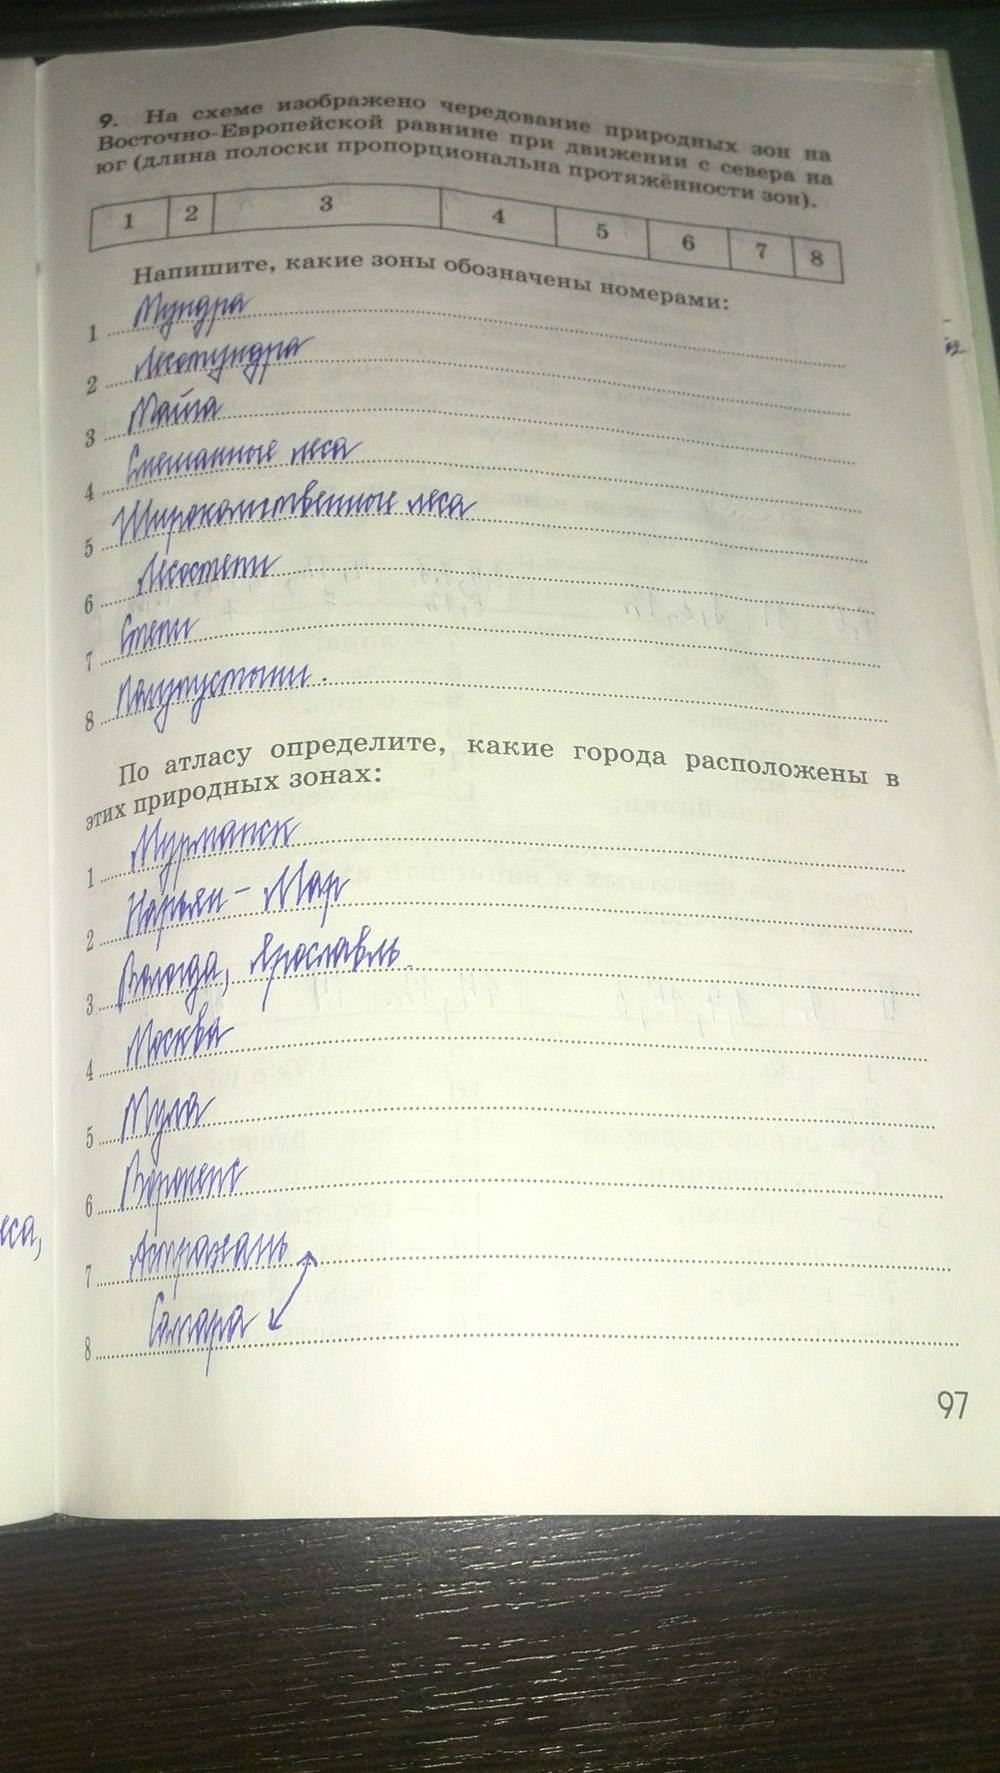 9. На схеме изображено чередование природных зон на
Восточно-Европейской равнине при движении с севера на
юг (длина полоски пропорциональна протяжённости зон).
1 2 3 4 5 6 7 8
Напишите, какие зоны обозначены номерами:
1 Тундра
2 Лесотундра
3 Тайга
4 Смешанные леса
5 Широколиственные леса
6 Лесостепи
7 Степи
8 Полупустыни.
По атласу определите, какие города расположены в
этих природных зонах:
1 Мурманск
2 Нарьян-Мар
3 Вологда, Ярославль.
4 Москва
5 Тула
6 Воронеж
7 Астрахань
8 Самара
еса,
97